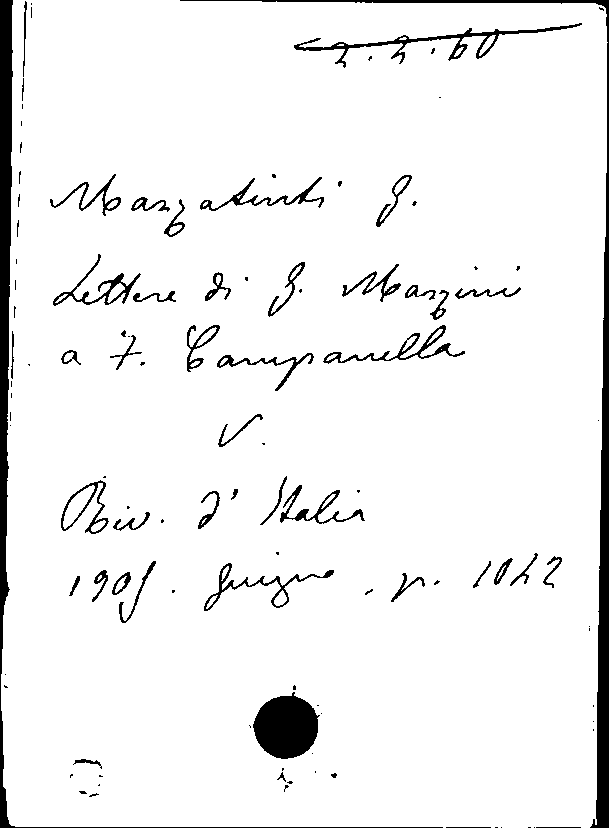 2.2.60
Mazzatinti G.
Lettere di G. Mazzini
a F. Campanella
V.
Riv. d'Italia
1905. giugno, p. 1042